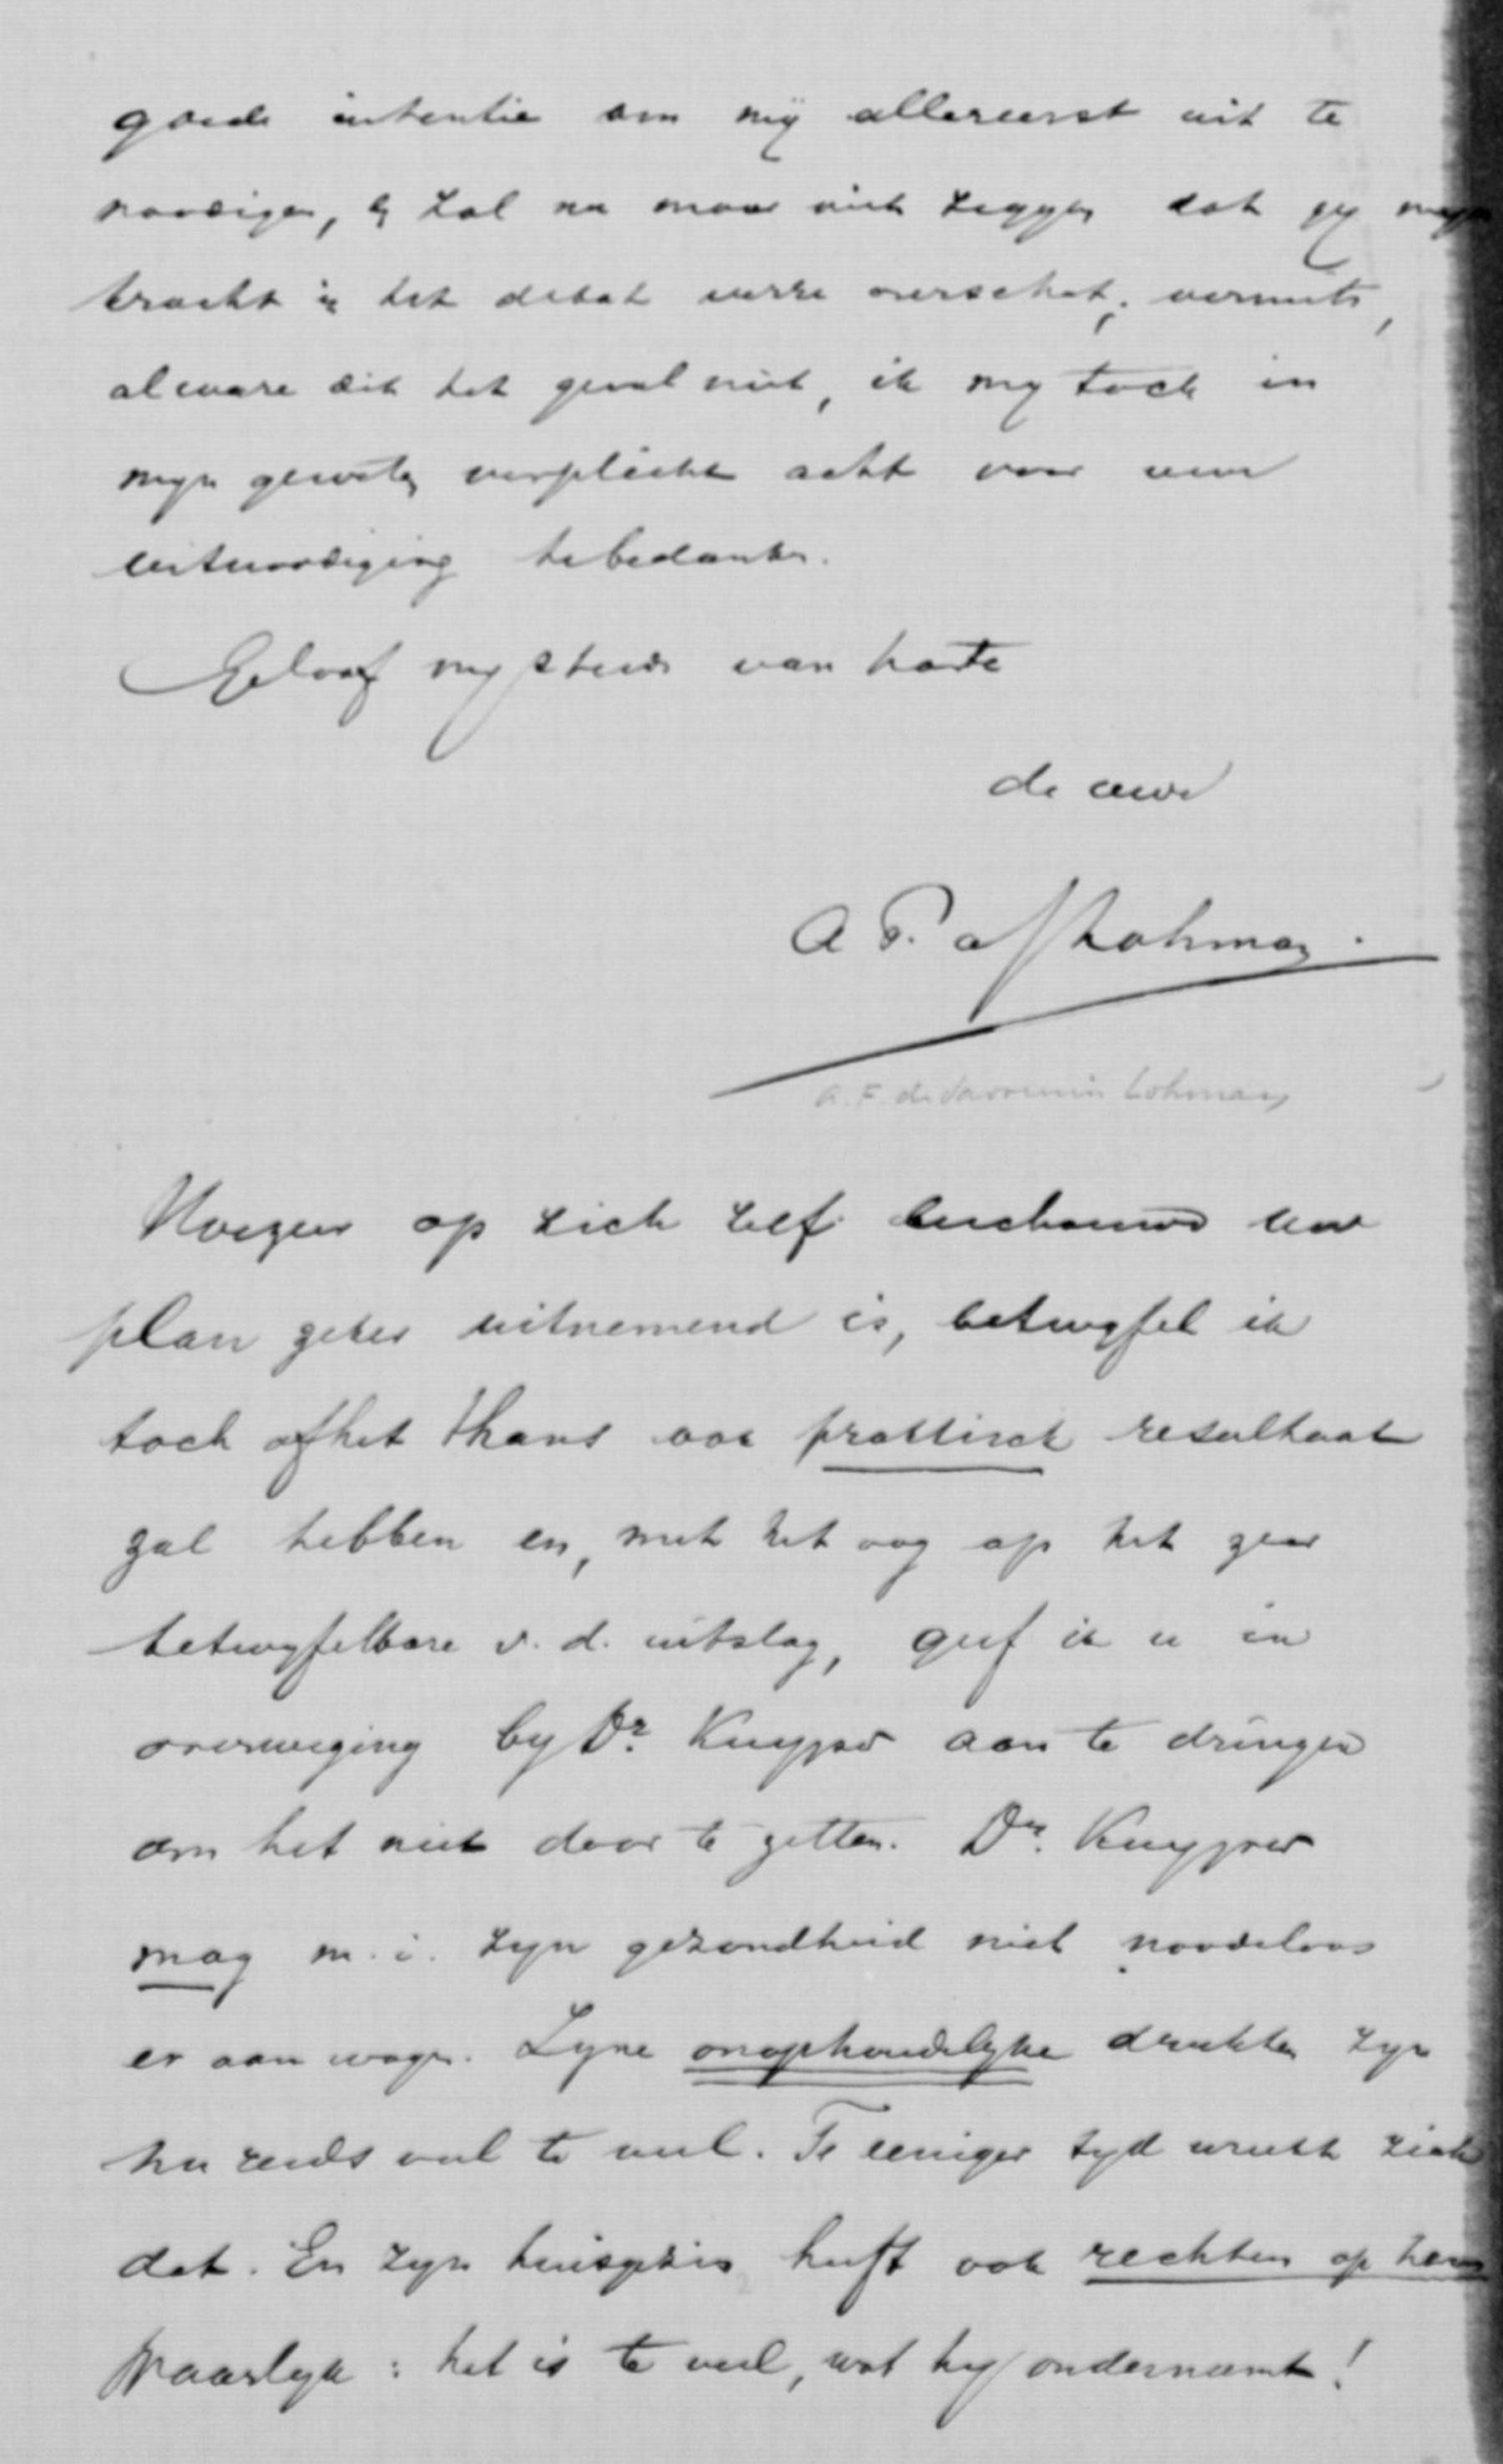 goede intentie om mij allereerst uit te
noodigen, ik zal nu maar niet zeggen dat gy myn
kracht in het debat verre overschat; vermits,
al ware dit het geval niet, ik my toch in
myn geweten verplicht acht voor uw
uitnoodiging te bedanken.
Geloof my steeds van harte
de uwe
A F. d S Lohman.
A. F. de Savornin Lohman
Hoezeer op zich zelf beschouwd uw
plan zeker uitnemend is, betwyfel ik
toch of het thans ook praktisch resultaat
zal hebben en, met het oog op het zeer
betwyfelbare v. d. uitslag, geef ik u in
overweging by Dr. Kuyper aan te dringen
om het niet door te zetten. Dr. Kuyper
mag m. i. zyn gezondheid niet noodeloos
er aan wagen. Zyne onophoudelyke drukten zyn
nu reeds veel te veel. Te eeniger tyd wreekt zich
dat. En zyn huisgezin heeft ook rechten op hem
Waarlyk: het is te veel, wat hy onderneemt!